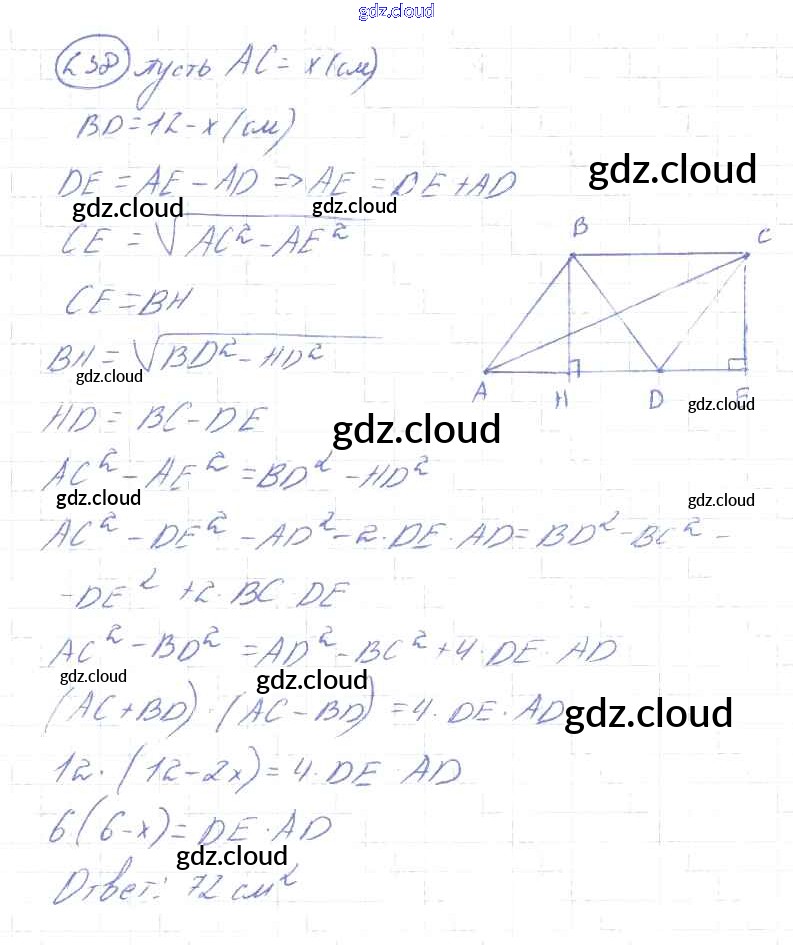 gdz.cloud
238 пусть AC = x (см)
BD = 12 - x (см)
gdz.cloud
DE = AE - AD => AE = DE + AD
gdz.cloud gdz.cloud
CE = √AC² - AE²
B C
CE = BH
BH = √BD² - HD²
gdz.cloud
A H D E
gdz.cloud
HD = BC - DE
gdz.cloud
AC² - AE² = BD² - HD²
gdz.cloud gdz.cloud
AC² - DE² - AD² - 2 · DE · AD = BD² - BC² -
- DE² + 2 · BC · DE
AC² - BD² = AD² - BC² + 4 · DE · AD
gdz.cloud gdz.cloud
(AC + BD) · (AC - BD) = 4 · DE · AD
gdz.cloud
12 · (12 - 2x) = 4 · DE · AD
6 (6 - x) = DE · AD
gdz.cloud
Ответ: 72 см²